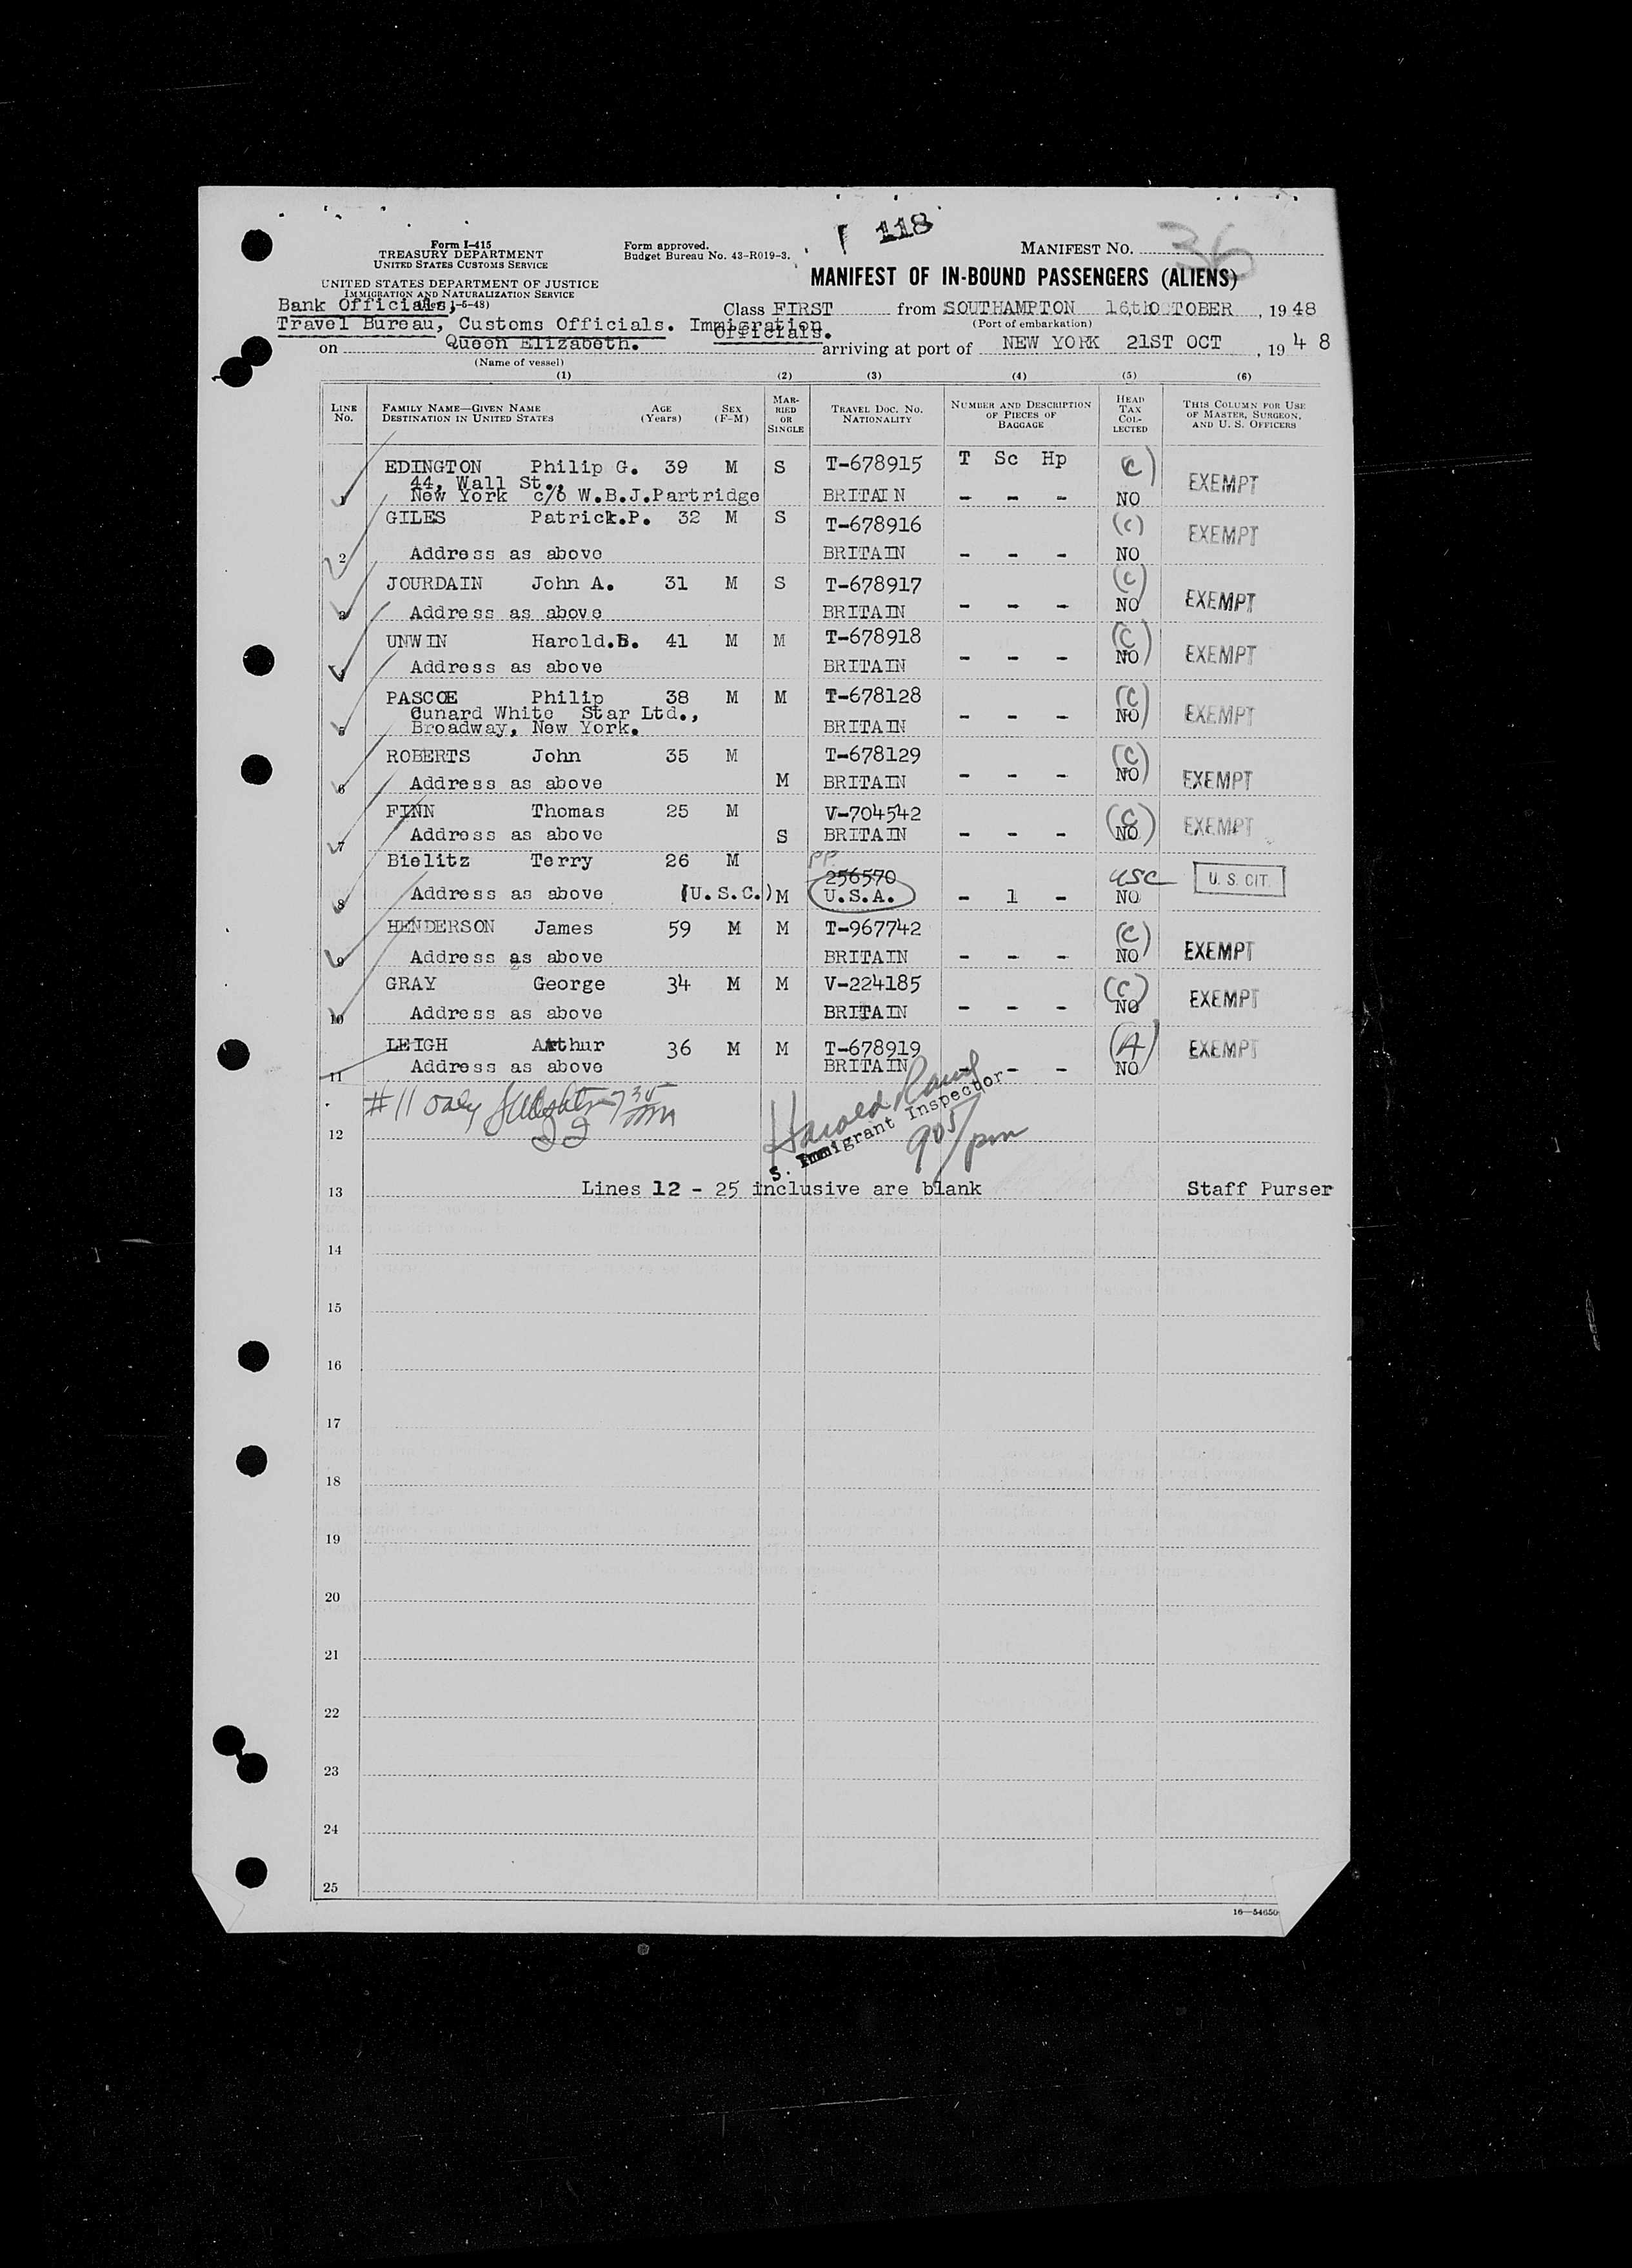 118
Form I-415
TREASURY DEPARTMENT
UNITED STATES CUSTOMS SERVICE
Form approved.
Budget Bureau No. 43-R019-3.
MANIFEST NO. 36
UNITED STATES DEPARTMENT OF JUSTICE
IMMIGRATION AND NATURALIZATION SERVICE
MANIFEST OF IN-BOUND PASSENGERS (ALIENS)
Bank Officials, 1-5-48)
Class FIRST from SOUTHAMPTON 16th OCTOBER, 1948
Travel Bureau, Customs Officials. Immigration Officials.
(Port of embarkation)
on Queen Elizabeth. arriving at port of NEW YORK 21ST OCT, 1948
(Name of vessel)
(1) (2) (3) (4) (5) (6)
LINE NO. FAMILY NAME—GIVEN NAME DESTINATION IN UNITED STATES AGE (Years) SEX (F-M) MARRIED OR SINGLE TRAVEL DOC. NO. NATIONALITY NUMBER AND DESCRIPTION OF PIECES OF BAGGAGE HEAD TAX COLLECTED THIS COLUMN FOR USE OF MASTER, SURGEON, AND U. S. OFFICERS
EDINGTON Philip G. 39 M S T-678915 T Sc Hp (C) EXEMPT
44, Wall St.,
1 New York c/o W.B.J.Partridge BRITAIN - - - NO
GILES Patrick.P. 32 M S T-678916 (c) EXEMPT
2 Address as above BRITAIN - - - NO
JOURDAIN John A. 31 M S T-678917 (c) EXEMPT
3 Address as above BRITAIN - - - NO
UNWIN Harold.B. 41 M M T-678918 (C) EXEMPT
4 Address as above BRITAIN - - - NO
PASCOE Philip 38 M M T-678128 (C) EXEMPT
Cunard White Star Ltd.,
5 Broadway, New York. BRITAIN - - - NO
ROBERTS John 35 M T-678129 (C)
6 Address as above M BRITAIN - - - NO EXEMPT
FINN Thomas 25 M V-704542 (C) EXEMPT
7 Address as above S BRITAIN - - - NO
Bielitz Terry 26 M PP 256570 USC U. S. CIT.
8 Address as above (U.S.C.) M U.S.A. - 1 - NO
HENDERSON James 59 M M T-967742 (C) EXEMPT
9 Address as above BRITAIN - - - NO
GRAY George 34 M M V-224185 (C) EXEMPT
10 Address as above BRITAIN - - - NO
LEIGH Arthur 36 M M T-678919 (A) EXEMPT
11 Address as above BRITAIN - - - NO
#11 only
Harold
S. Immigrant Inspector
905/pm
12
13 Lines 12 - 25 inclusive are blank Staff Purser
14
15
16
17
18
19
20
21
22
23
24
25
16—54650